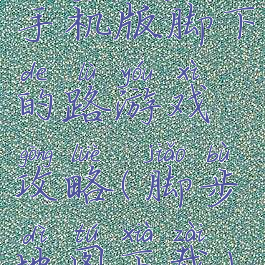 手机版脚下
de lù yóu xì
的路游戏
gōng lüè jiǎo bù
攻略(脚步
dì tú xià zǎi
地图下载)